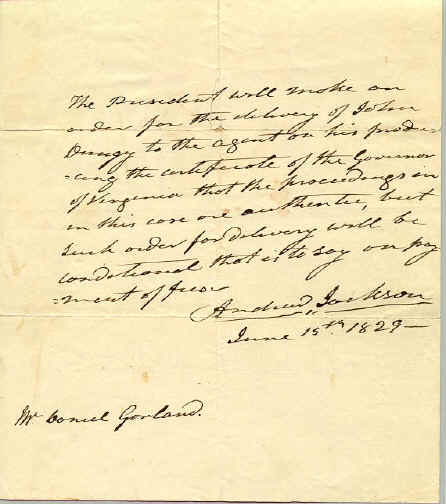 The President will make an
order for the delivery of John
Dungy to the agent on his produ=
=cing the certificate of the Governor
of Virginia that the proceedings in
in this case are authentic, but
such order for delivery will be
conditional that is to say on pay
=ment of fees
Andrew Jackson
June 15th 1829—
Mr Daniel Gorland.